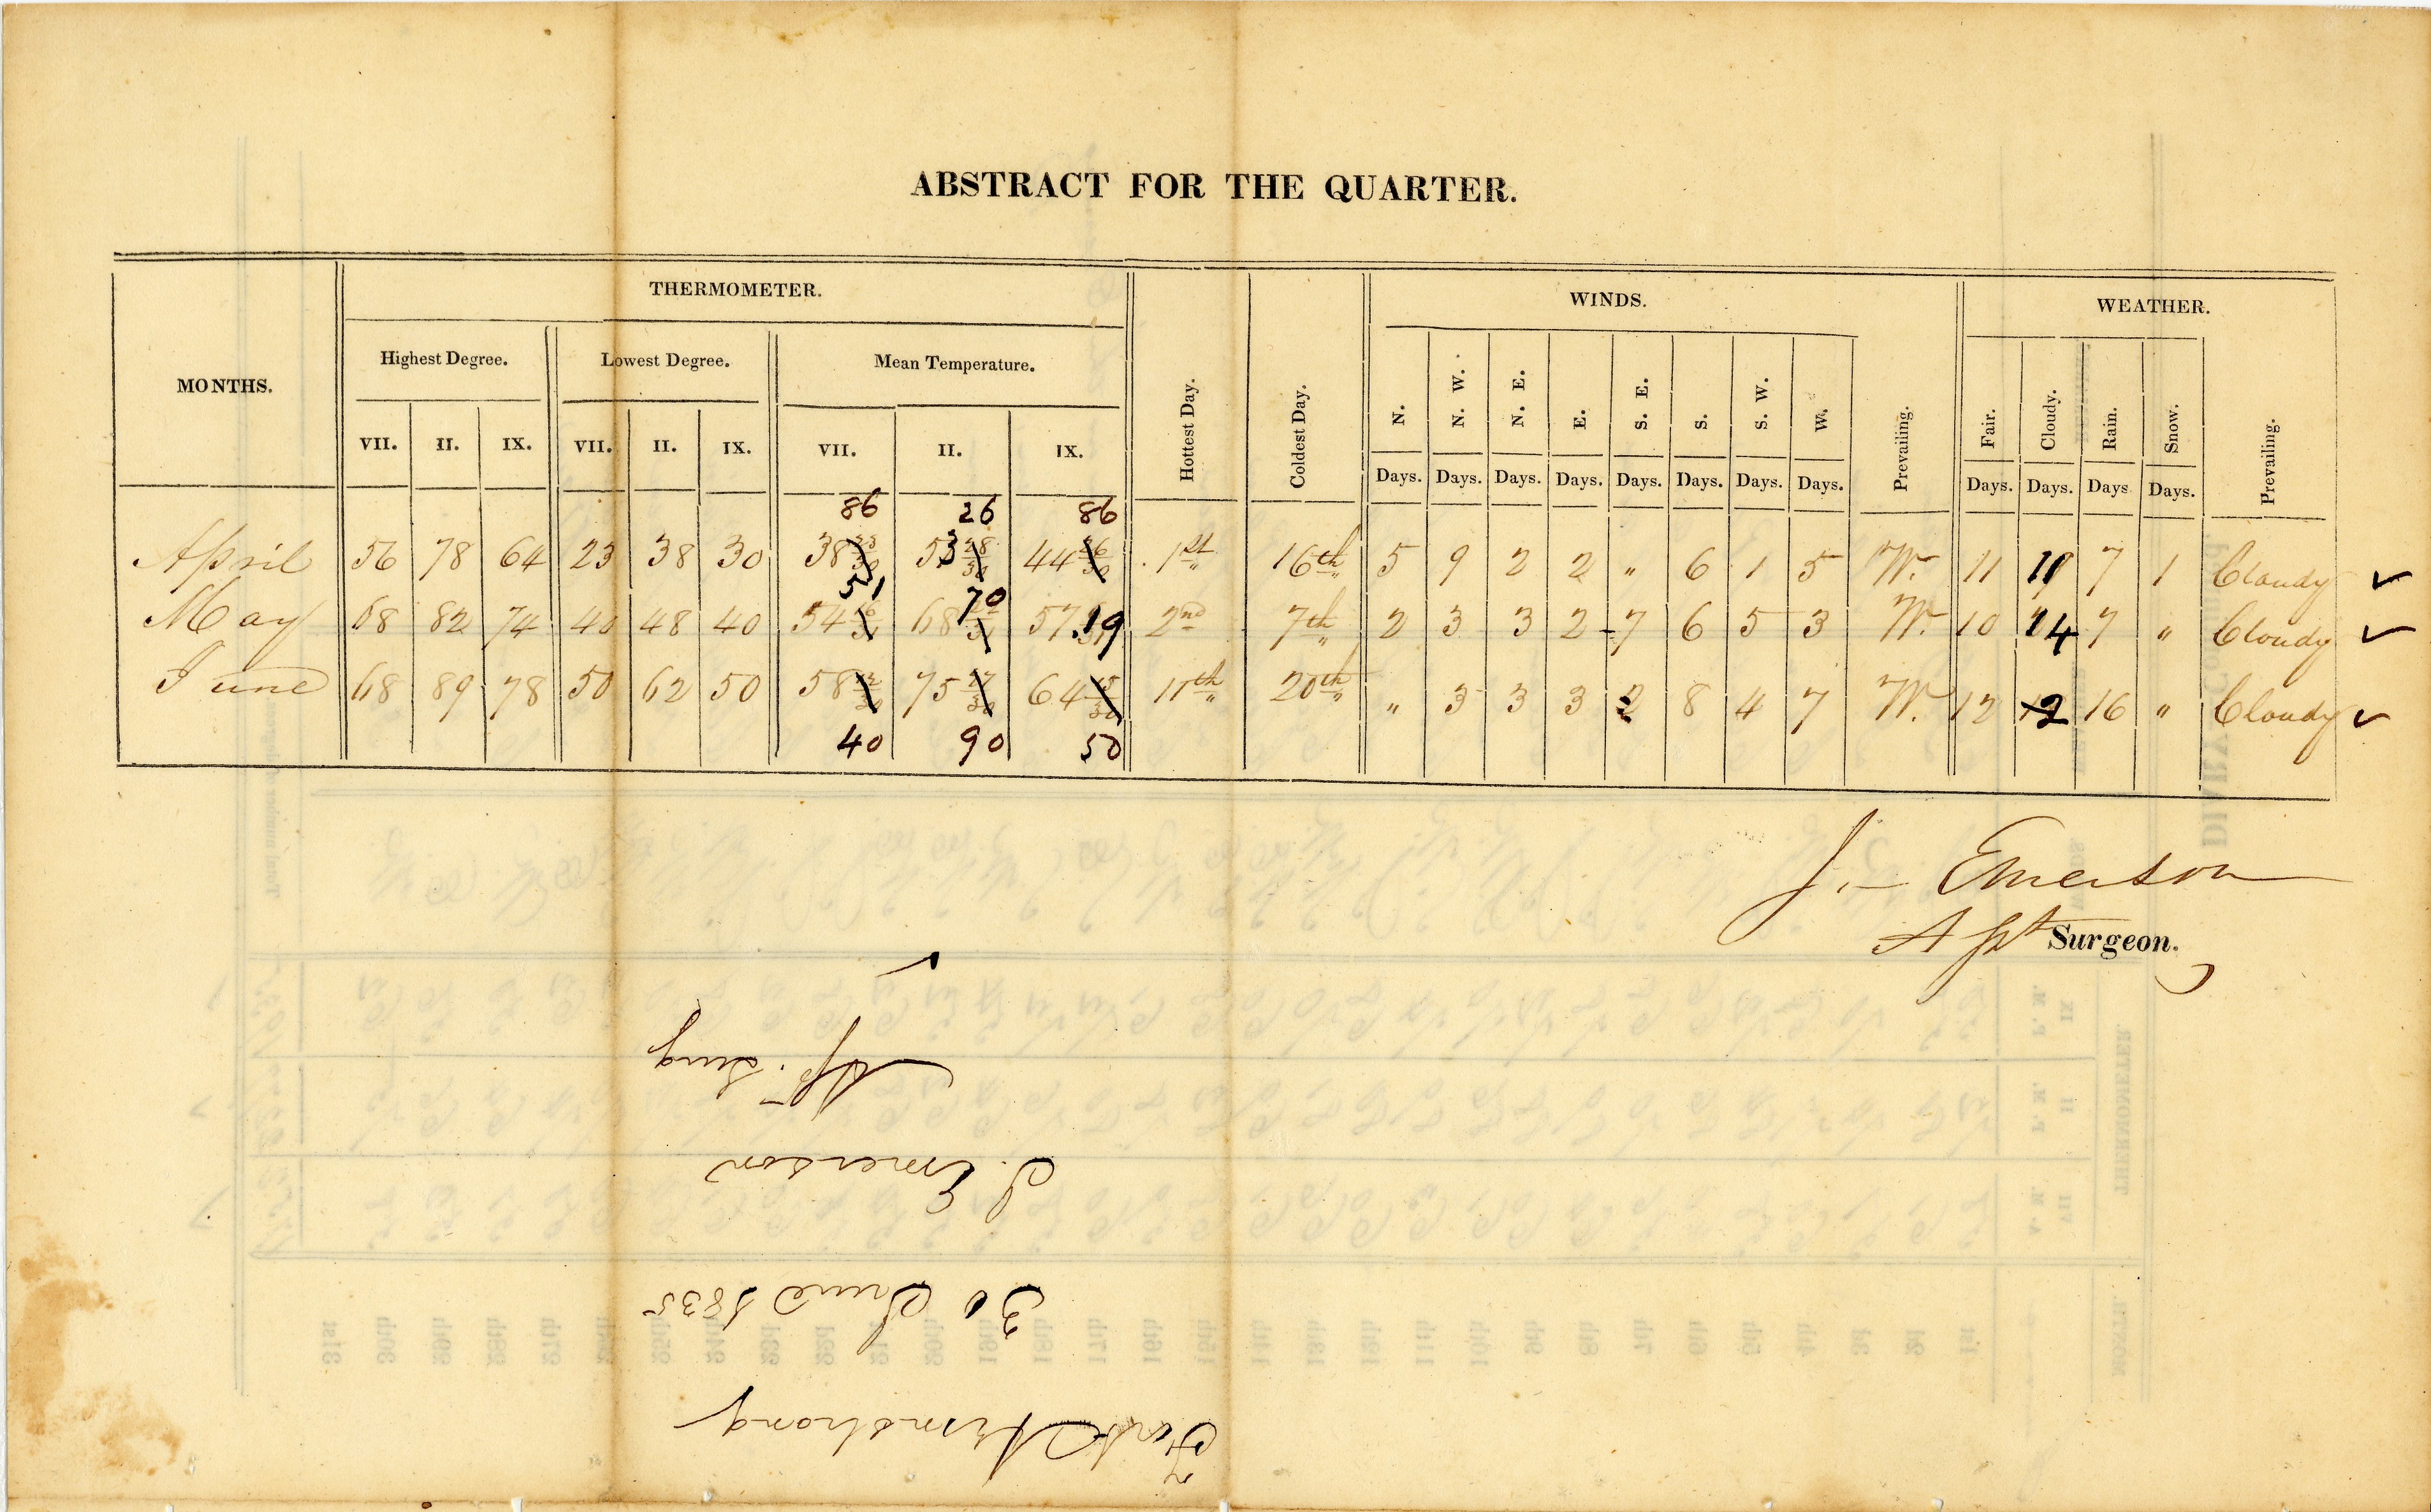 ABSTRACT FOR THE QUARTER.
MONTHS. THERMOMETER. Hottest Day. Coldest Day. WINDS. WEATHER.
Highest Degree. Lowest Degree. Mean Temperature. N. N. W. N. E. E. S. E. S. S. W. W. Prevailing. Fair. Cloudy. Rain. Snow. Prevailing.
VII. II. IX. VII. II. IX. VII. II. IX. Days. Days. Days. Days. Days. Days. Days. Days. Days. Days. Days Days.
86 26 86
April 56 78 64 23 38 30 38 53 44 1st 16th 5 9 2 2 " 6 1 5 W. 11 11 7 1 Cloudy ✓
51 70
May 68 82 74 40 48 40 54 68 57.19 2nd 7th 2 3 3 2 7 6 5 3 W. 10 14 7 " Cloudy ✓
June 68 89 78 50 62 50 58 75 64 11th 20th " 3 3 3 2 8 4 7 W. 12 2 16 " Cloudy ✓
40 90 50
J. Emerson
Asst Surgeon.
Fort Armstrong
30 June 1835
J. Emerson
As. Surg